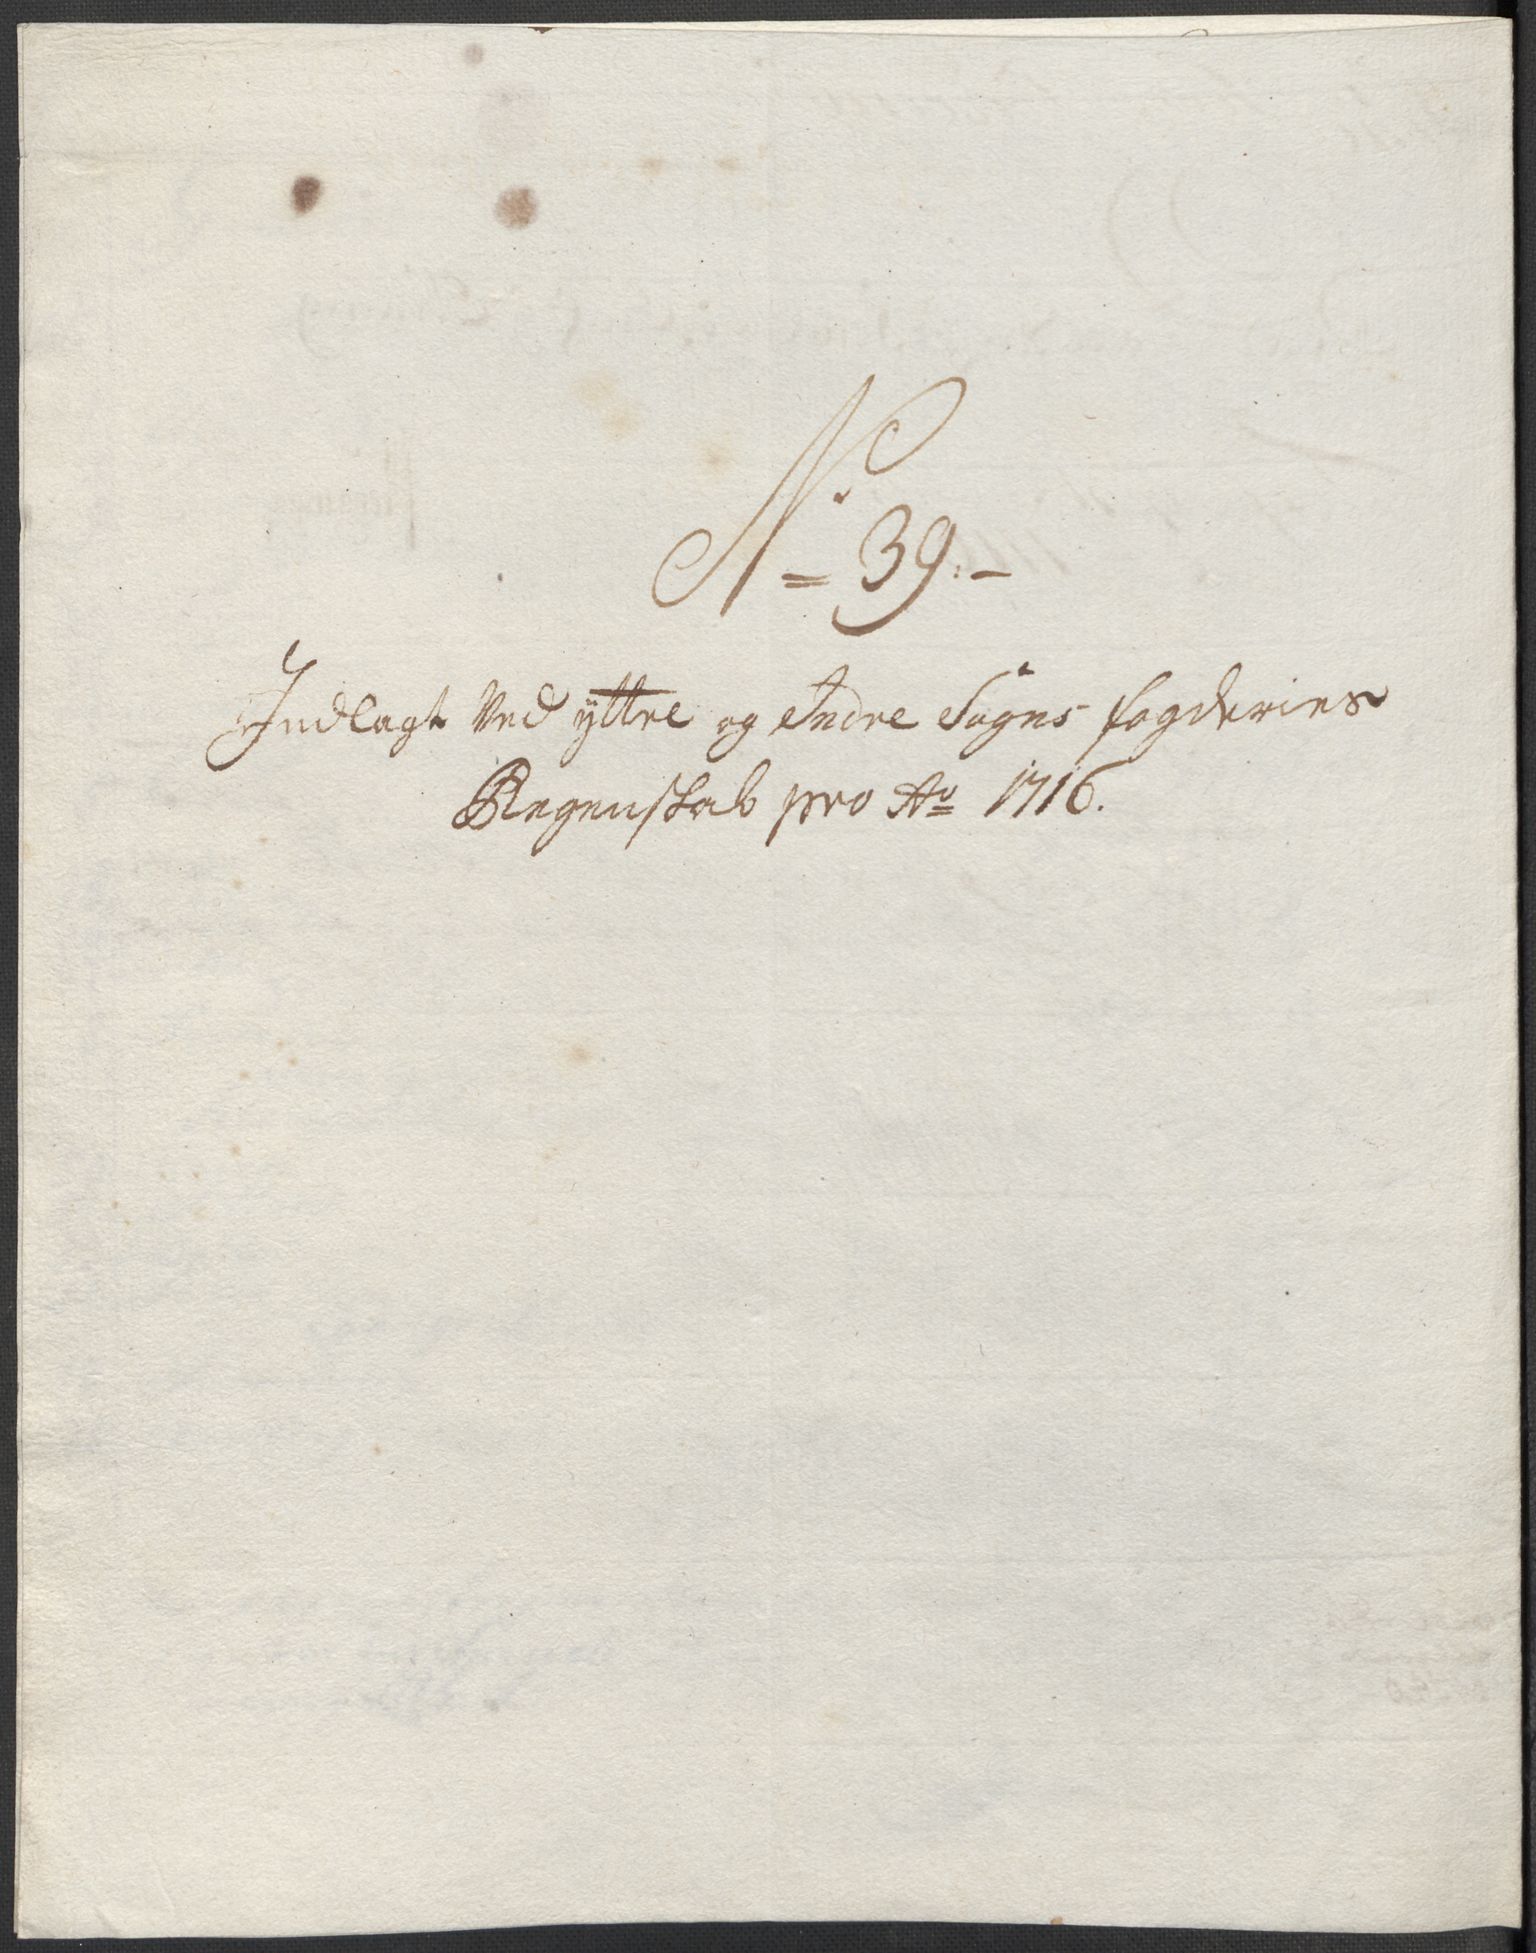 No= 39.-
Indlagt Ved ÿttre og Indre Sogns fogderies
Regenskab pro Ao 1716.